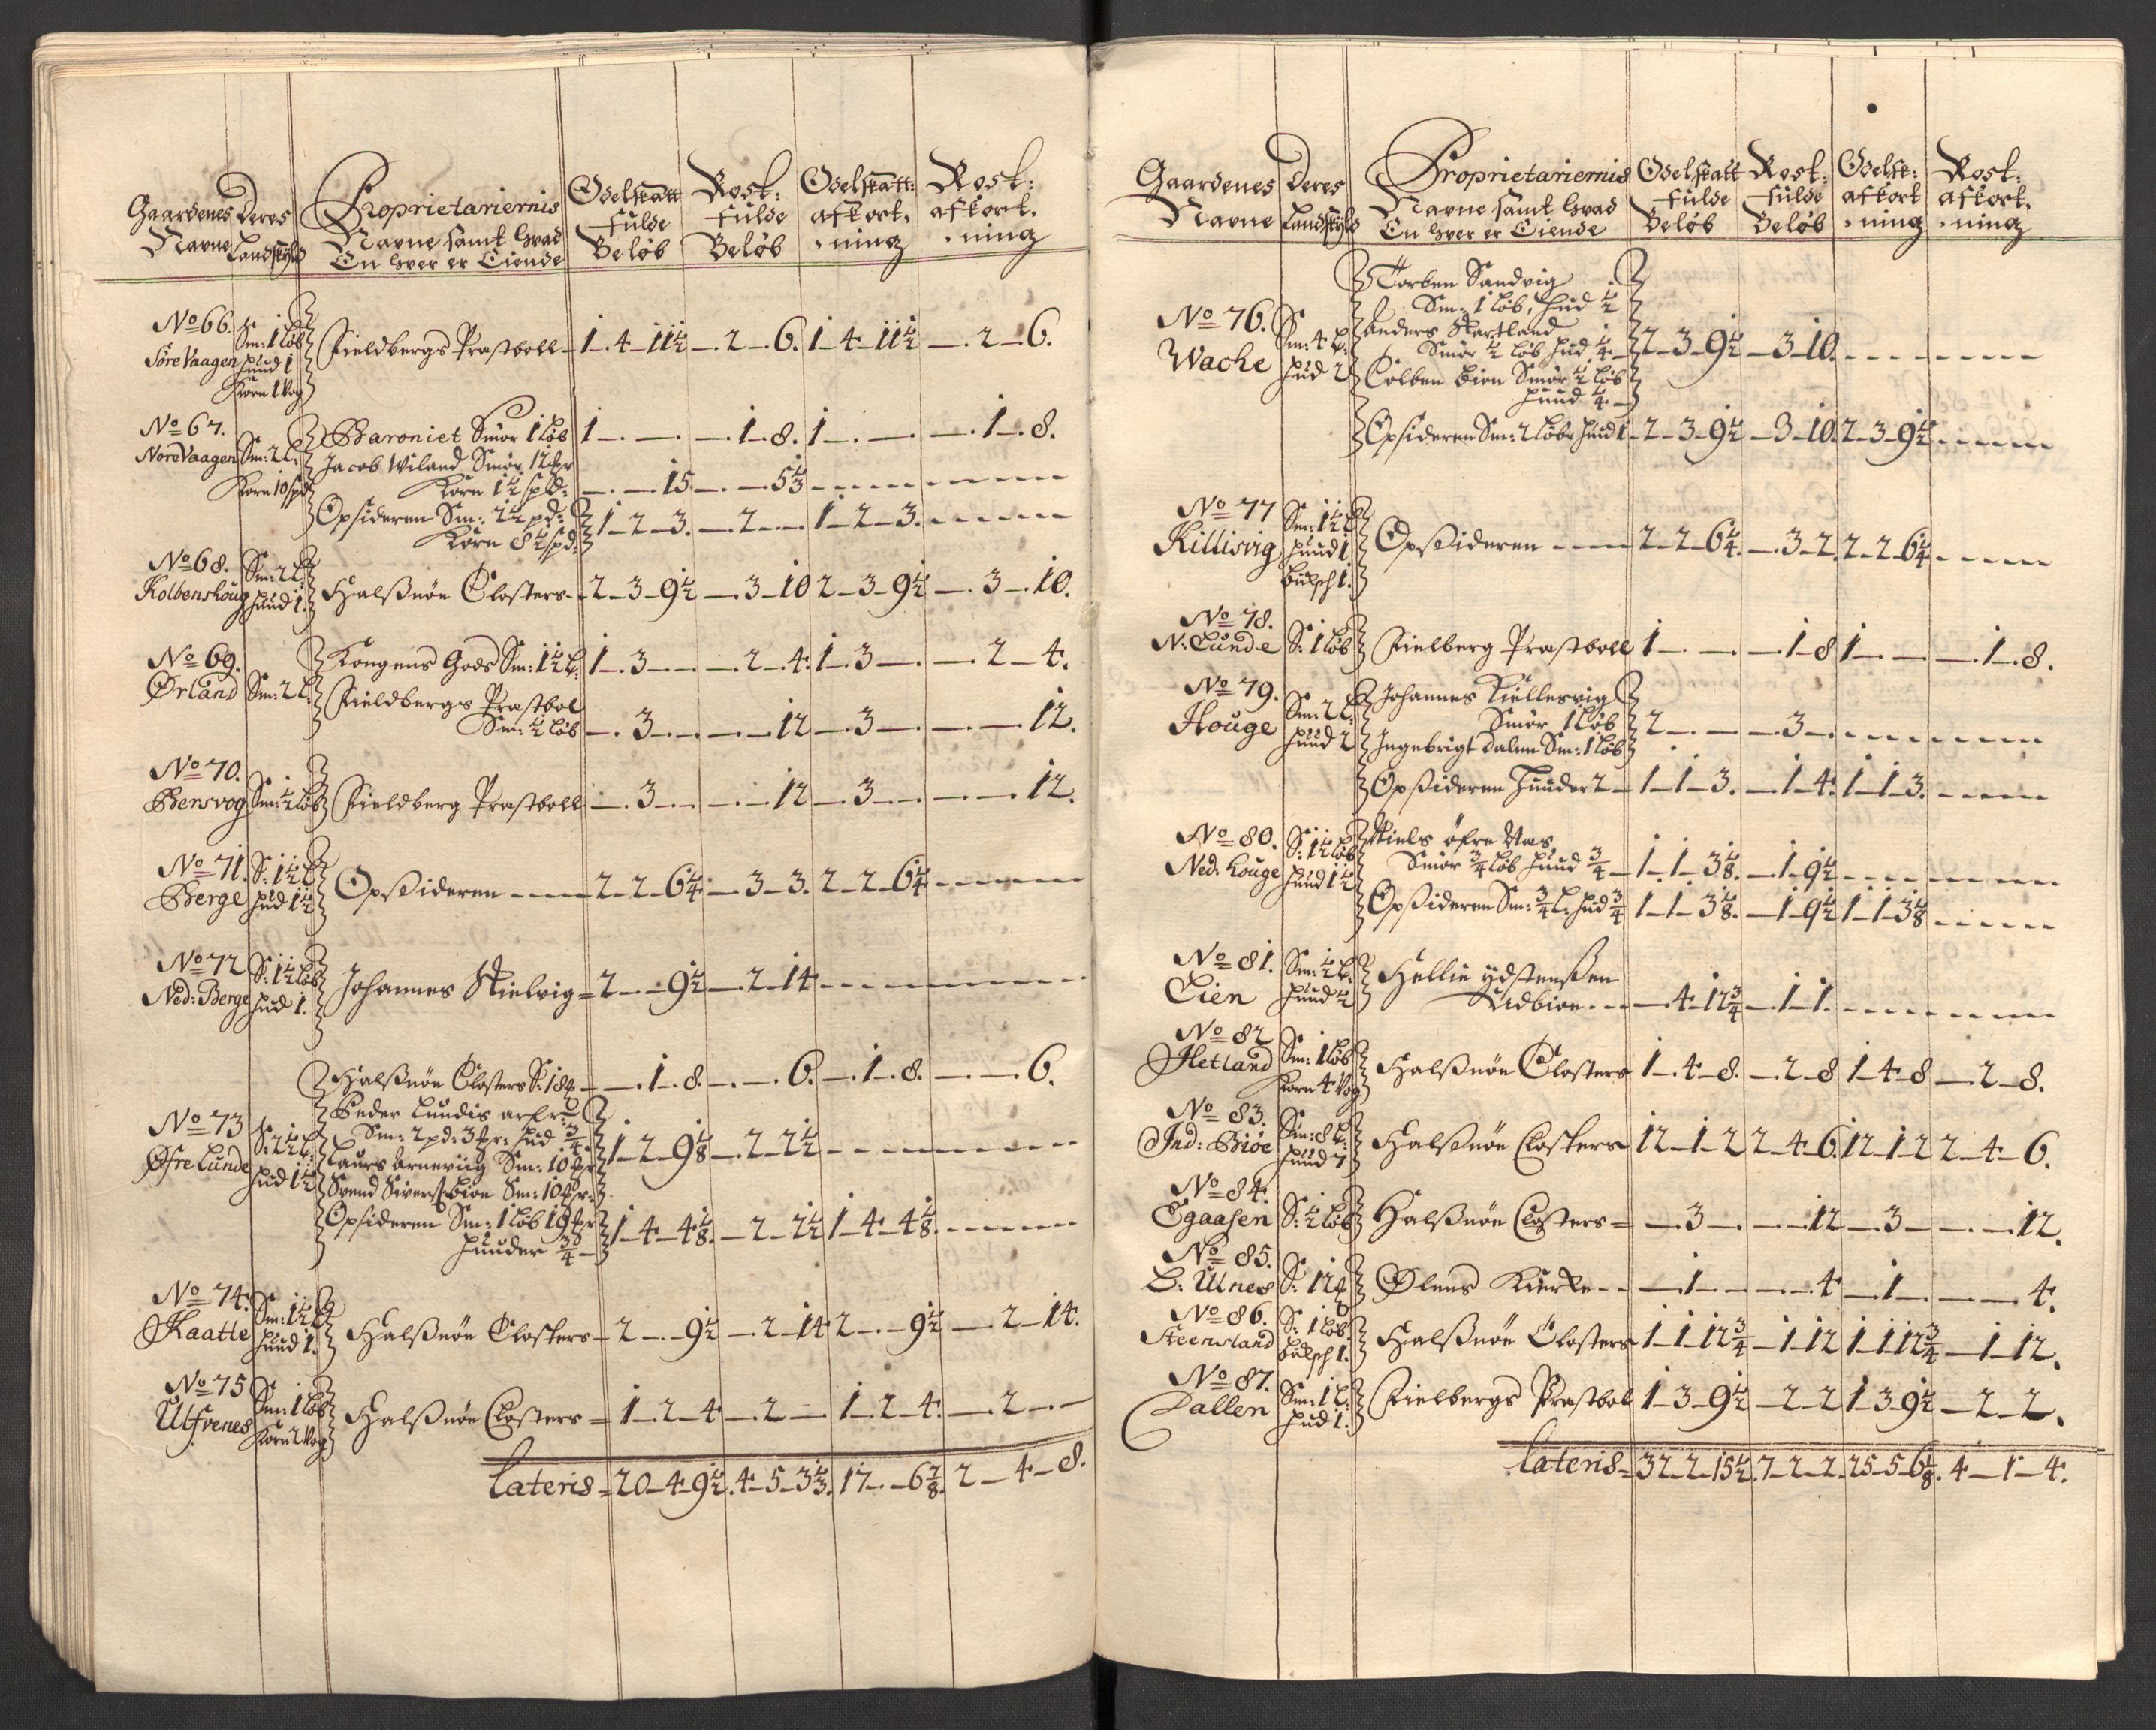 Gaardenes Deres Proprietariernis Odelskatt Rost: Odelskatt: Rost:
Navne Landskyld Navne samt hvad fulde fulde afkort. afkort.
En hver er Eiende Beløb Beløb ning ning
No 66. Sm: 1 løb
Søre Vaagen huud 1 Fieldbergs Præstboll 1-4-11½ -2-6. 1-4-11½ -2-6.
Korn 1 Vog
No 67. Baroniet Smør 1 løb 1-.-. -1-8. 1-.-. -1-8.
Nore Vaagen Sm: 2 L: Jacob Wiland Smør 12 mr
Korn 10 spd Korn 1½ spd: -.-15. -.-5⅓
Opsideren Sm: 2½ pd:
Korn 8½ spd: 1-2-3. -2-. 1-2-3.
No 68. Sm: 2 L:
Kolbenshoug huud 1. Halsnøe Closters 2-3-9½ -3-10 2-3-9½ -3-10.
No 69. Kongens Gods Sm: 1½ L: 1-3-. -2-4. 1-3-. -2-4.
Ørland Sm: 2 L: Fieldbergs Præstbol
Sm: ½ løb -3-. -.-12 -3-. -.-12.
No 70.
Bersvog Sm: ½ løb Fieldberg Præstboll -3-. -.-12 -3-. -.-12.
No 71. S: 1½ L
Berge hud 1½ Opsideren 2-2-6¼. -3-3. 2-2-6¼
No 72 S: 1½ løb
Ned: Berge hud 1. Johannes Nielvig 2-.-9½ -2-14
Halsnøe Closters S: 18 mr -1-8. -.-6. -1-8. -.-6.
Peder Lundis arfr:
No 73 S: 2½ L: Sm: 2 pd: 3 mr: hud ¾. 1-2-9⅛ -2-2½
Øfre Lunde hud 1½ Laurs Arneviig Sm: 10 mr
Svend Sivers: Bion Sm: 10 mr:
Opsideren Sm: 1 løb 19 mr 1-4-4⅛. -2-2½ 1-4-4⅛
huuder ¾
No 74. Sm: 1½ L
Kaatle huud 1. Halsnøe Closters 2-.-9½ -2-14 2-.-9½ -2-14.
No 75 Sm: 1 løb
Utfvenes Korn 2 Vog Halsnøe Closters 1-2-4 -2-. 1-2-4. -2-.
Lateris 20-4-9½. 4-5-3⅓. 17-.-6⅞. 2-4-8.
Gaardenes Deres Proprietariernis Odelskatt Rost: Odelsk: Rost:
Navne Landskyld Navne samt hvad fulde fulde afkort afkort.
En hver er Eiende Beløb Beløb ning ning
Torben Sandvig
No 76. Sm: 1 løb, hud ½
Sm: 4 L: Anders Startland
Wache hud 2 Smør ½ løb hud ¼. 2-3-9½ -3-10.
Colben Bion Smør ½ løb
huud ¼.
Opsideren Sm: 2 løb huud 1 2-3-9½ -3-10. 2-3-9½
No 77 Sm: 1½ L
Killisvig huud 1 Opsideren 2-2-6¼. -3-2. 2-2-6¼
budsch 1.
No 78.
N: Lunde S: 1 løb Fielberg Præstboll 1-.-. -1-8 1-.-. -1-8.
No 79. Sm: 2 L: Johannes Kiellesvig
Houge huud 2 Smør 1 løb 2-.-. -3-.
Ingebrigt Dalen Sm: 1 løb
Opsideren Huuder 2 1-1-3. -1-4. 1-1-3.
No 80. S: 1½ løb Niels øfre Vas,
Ned. Houge huud 1½ Smør ¾ løb huud ¾ 1-1-3⅛. -1-9½
Opsideren Sm: ¾ L: hud ¾ 1-1-3⅛. -1-9½ 1-1-3⅛
No 81. Sm: ½ L: Hellie Ydstensen
Eien huud ½ Udbion -4-12¾ -1-1.
No 82 Sm: 1 løb
Hetland Korn 4 Vog Halsnøe Closters 1-4-8. -2-8 1-4-8 -2-8.
No 83. Sm: 8 L:
Ind: Biøe huud 7 Halsnøe Closters 12-1-2 2-4-6. 12-1-2 2-4-6.
No 84.
Egaasen S: ½ løb Halsnøe Closters -3-. -.-12 -3-. -.-12.
No 85.
L: Ulnes S: 12 mr Ølens Kircke -1-. -.-4 -1-. -.-4.
No 86. S: 1 løb.
Steensland budsch 1. Halsnøe Closters 1-1-12¾ -1-12 1-1-12¾ -1-12.
No 87. Sm: 1 L:
Dallen hud 1. Fielbergs Præstbol 1-3-9½ -2-2 1-3-9½ -2-2.
Lateris 32-2-15½. 7-2-2. 25-5-6⅛. 4-1-4.